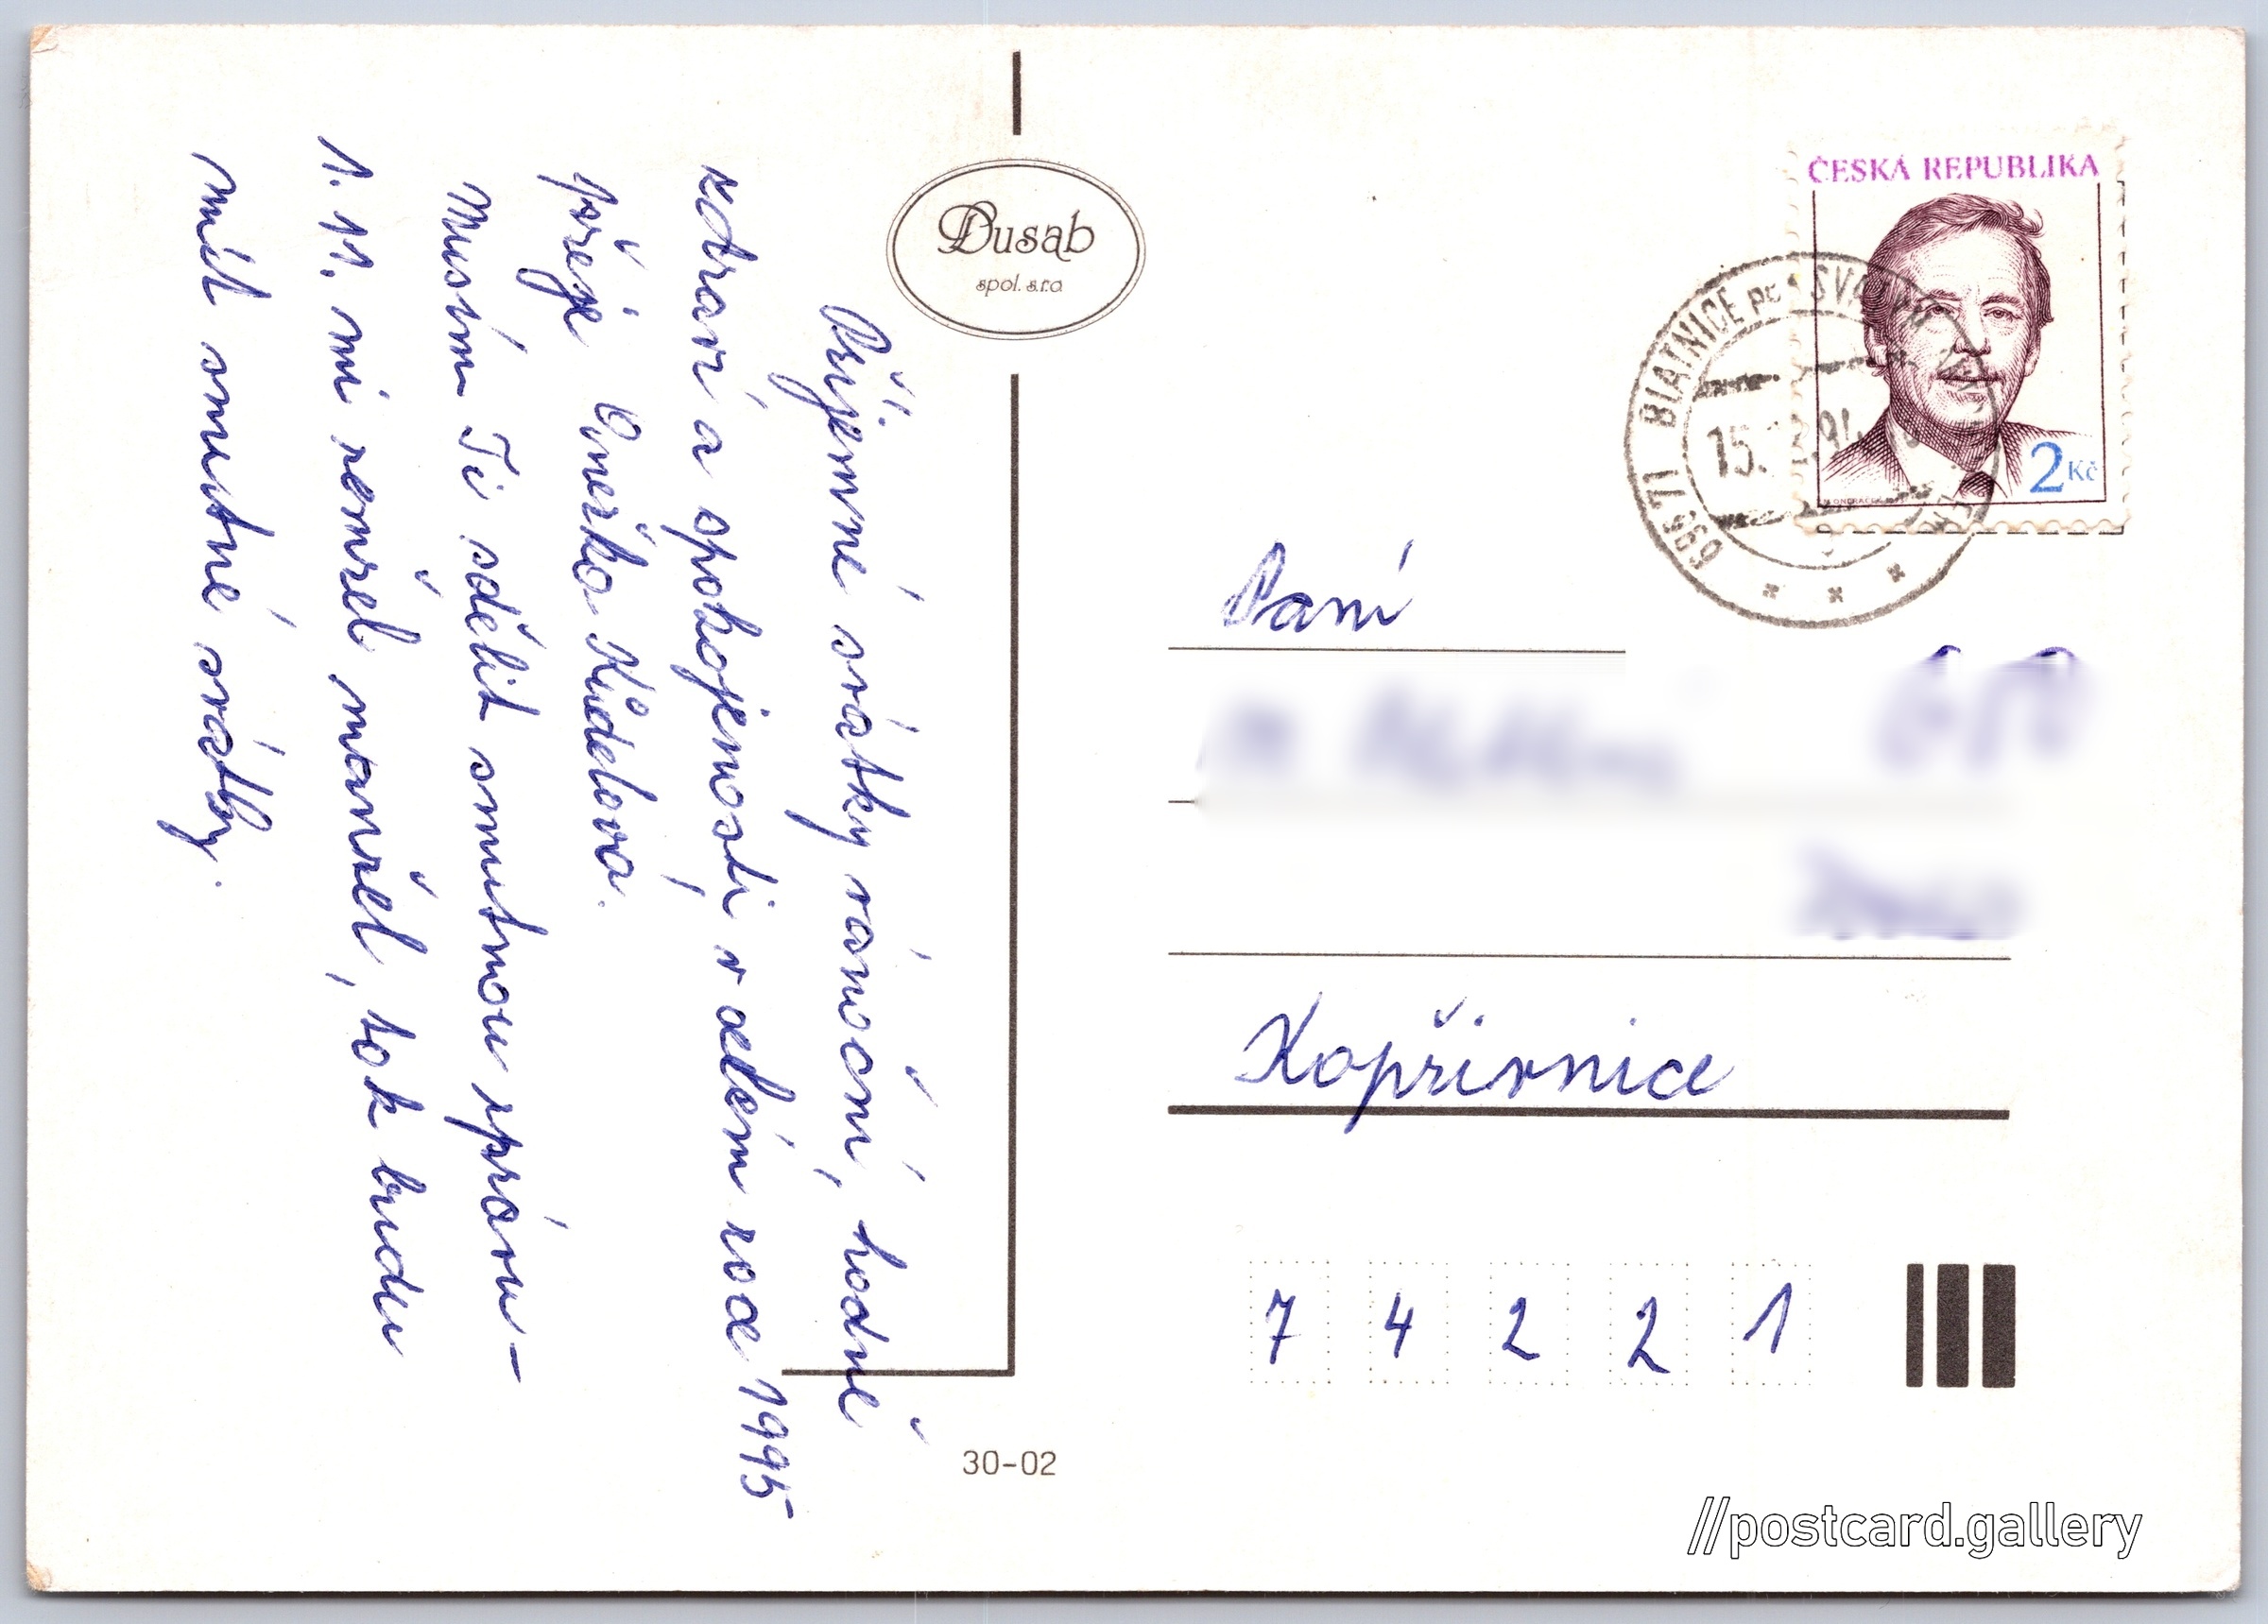 Příjemné svátky vánoční, hodně
zdraví a spokojenosti v celém roce 1995
přeje Anežka Kudelová.
Musím Ti sdělit smutnou zprávu –
1. 11. mi zemřel manžel, tak budu
mít smutné svátky.
Dusab
spol. s.r.o
ČESKÁ REPUBLIKA
2 Kč
696 71 BLATNICE POD SVATÝM
15.
Paní
Kopřivnice
7 4 2 2 1
30-02
//postcard.gallery